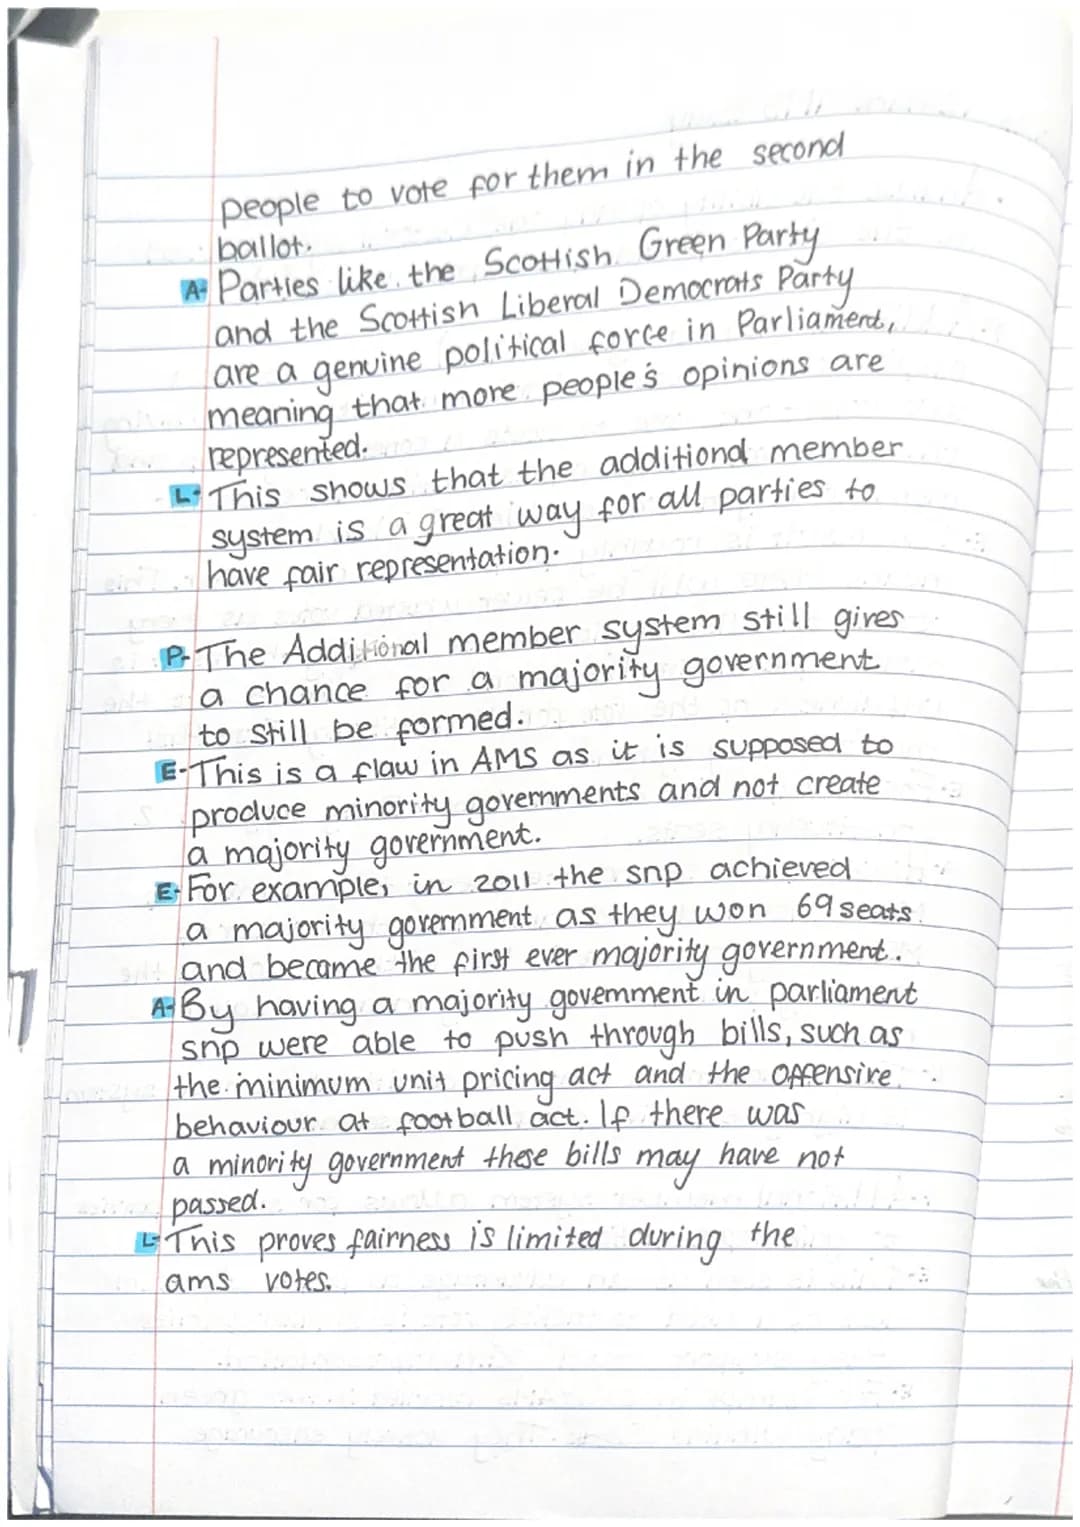 people to vote for them in the second
ballot.
A- Parties like the Scottish Green Party
and the Scottish Liberal Democrats Party
are a genuine political force in Parliament,
meaning that more people's opinions are
represented.
L- This shows that the additional member
system is a great way for all parties to
have fair representation.
P- The Additional member system still gives
a chance for a majority government
to still be formed.
E- This is a flaw in AMS as it is supposed to
produce minority governments and not create
a majority government.
E- For example, in 2011 the snp achieved
a majority government as they won 69 seats
and became the first ever majority government.
A- By having a majority government in parliament
snp were able to push through bills, such as
the minimum unit pricing act and the offensive
behaviour at football act. If there was
a minority government these bills may have not
passed.
L- This proves fairness is limited during the
ams votes.